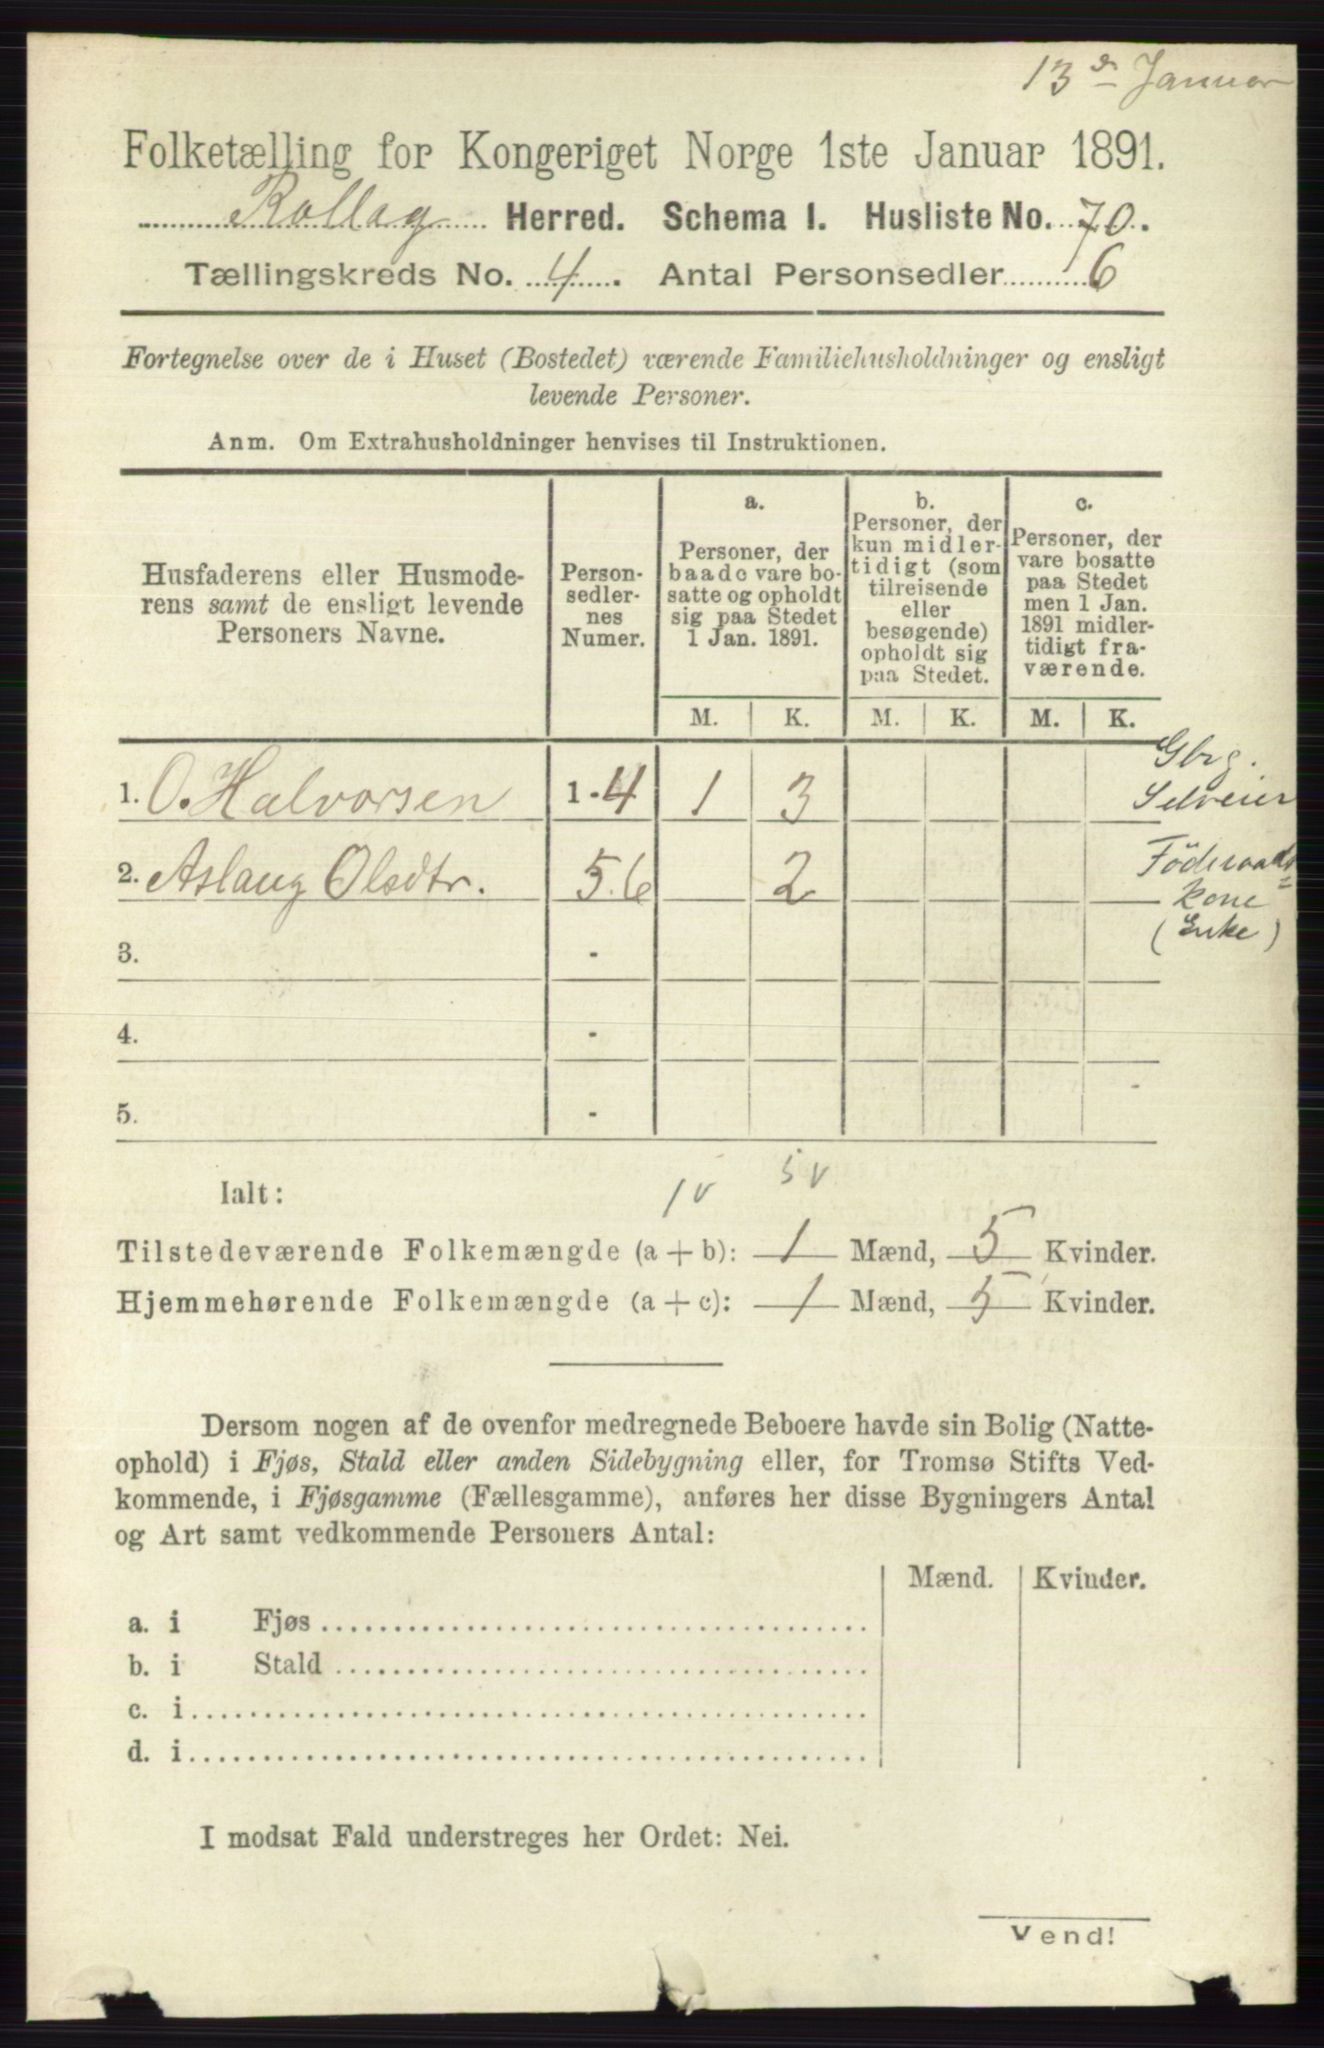 13de Januar
Folketælling for Kongeriget Norge 1ste Januar 1891.
Rollag Herred. Schema I. Husliste No. 70.
Tællingskreds No. 4. Antal Personsedler 6
Fortegnelse over de i Huset (Bostedet) værende Familiehusholdninger og ensligt
levende Personer.
Anm. Om Extrahusholdninger henvises til Instruktionen.
Husfaderens eller Husmode-
rens samt de ensligt levende
Personers Navne.
Person-
sedler-
nes
Numer.
a.
Personer, der
baade vare bo-
satte og opholdt
sig paa Stedet
1 Jan. 1891.
b.
Personer, der
kun midler-
tidigt (som
tilreisende
eller
besøgende)
opholdt sig
paa Stedet.
c.
Personer, der
vare bosatte
paa Stedet
men 1 Jan.
1891 midler-
tidigt fra-
værende.
M. K. M. K. M. K.
1. O. Halvorsen 1-4 1 3 Gbrg.
Selveier
2. Aslaug Olsdtr. 5.6 2 Föderaads=
kone
(Enke)
3. -
4. -
5. -
Ialt: 1 v 5 v
Tilstedeværende Folkemængde (a + b): 1 Mænd, 5 Kvinder.
Hjemmehørende Folkemængde (a + c): 1 Mænd, 5 Kvinder.
Dersom nogen af de ovenfor medregnede Beboere havde sin Bolig (Natte-
ophold) i Fjøs, Stald eller anden Sidebygning eller, for Tromsø Stifts Ved-
kommende, i Fjøsgamme (Fællesgamme), anføres her disse Bygningers Antal
og Art samt vedkommende Personers Antal:
Mænd. Kvinder.
a. i Fjøs
b. i Stald
c. i
d. i
I modsat Fald understreges her Ordet: Nei.
Vend!